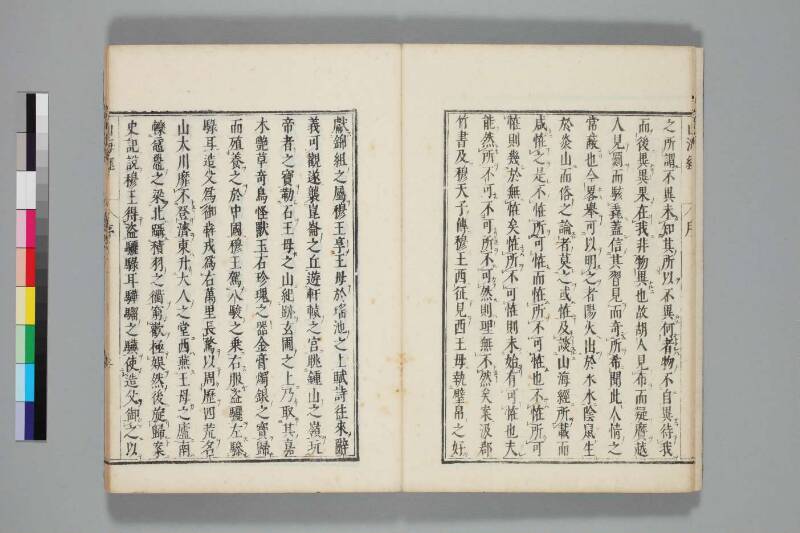 之所謂不異未知其所以不異何者物不自異待我
而後異異果在我非物異也故胡人見布而疑黂越
人見罽而駭毳蓋信其習見而奇所希聞此人情之
常蔽也今畧舉可以明之者陽火出於水水陰鼠生
於炎山而俗之論者莫之或恠及談山海經所載而
咸恠之是不恠所可恠而恠所不可恠也不恠所可
恠則幾於無恠矣恠所不可恠則未始有可恠也夫
能然所不可不可所不可然則理無不然矣案汲郡
竹書及穆天子傳穆王西征見西王母執璧帛之好
獻錦組之屬穆王享王母於瑤池之上賦詩往來辭
義可觀遂襲崑崙之丘遊軒轅之宮眺鍾山之嶺玩
帝者之寶勒石王母之山紀跡玄圃之上乃取其嘉
木艷草奇鳥怪獸玉石珍瑰之器金膏燭銀之寶歸
而殖養之於中國穆王駕八駿之乘右服盜驪左驂
騄耳造父為御犇戎為右萬里長騖以周歷四荒名
山大川靡不登濟東升大人之堂西燕王母之廬南
轢黿鼉之梁北躡積羽之衢窮歡極娛然後旋歸案
史記說穆王得盜驪騄耳驊騮之驥使造父御之以